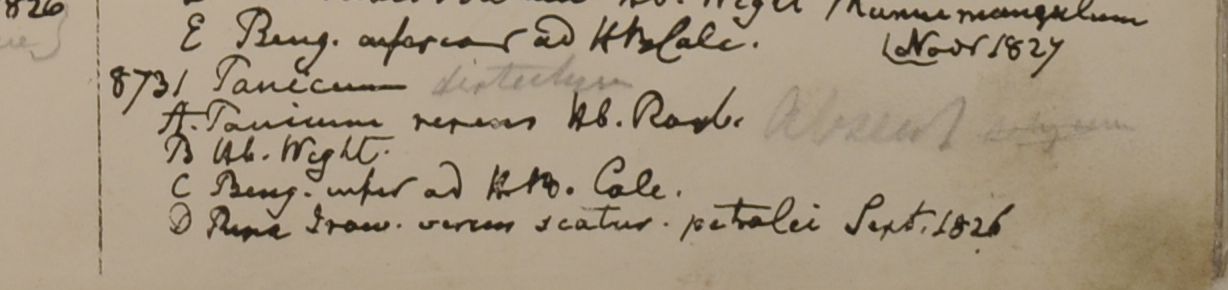 1826 Hb. Wight Runnemangulum
E Beng. inferior ad HBCalc. Novr 1827
8731 Panicum distachyum
A. Panicum repens Hb. Roxb. Absent
B Hb. Wight.
C Beng. infer ad HB. Calc.
D Ripa Iraw. versus scatur. petrolei Sept. 1826